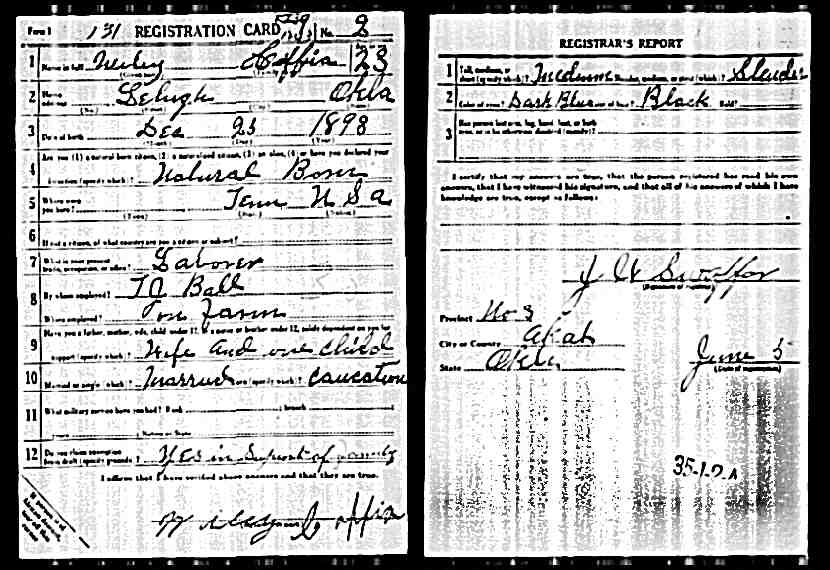 Form 1 131 REGISTRATION CARD No. 2
1 Name in full 23
2 Lehigh Okla
3 Date of birth Dec 23 1898
Are you (1) a natural born citizen, (2) a naturalized citizen, (3) an alien, (4) or have you declared your
4 intention (specify which)? Natural Born
5 Where were you born? Tenn U S A
6 If not a citizen, of what country are you a citizen or subject?
7 What is your present trade, occupation, or office? Laborer
8 By whom employed? Ball
Where employed? on Farm
Have you a father, mother, wife, child under 12, or a sister or brother under 12, solely dependent on you for
9 support (specify which)? Wife and one child
10 Married or single (which)? Married (specify which)? Caucation
11 What military service have you had? Rank ; branch
years ; Nation or State
12 Do you claim exemption from draft (specify grounds)? Yes in Support of family
I affirm that I have verified above answers and that they are true.
REGISTRAR'S REPORT
1 Tall, medium, or short (specify which)? Medium Slender, medium, or stout (which)? Slender
2 Color of eyes? Dark Blue Color of hair? Black Bald?
3 Has person lost arm, leg, hand, foot, or both
I certify that my answers are true, that the person registered has read his own
answers, that I have witnessed his signature, and that all of his answers of which I have
knowledge are true, except as follows:
J W Swaffor
(Signature of registrar)
Precinct No 3
City or County
State Okla June 5
(Date of registration)
35-1-2 A